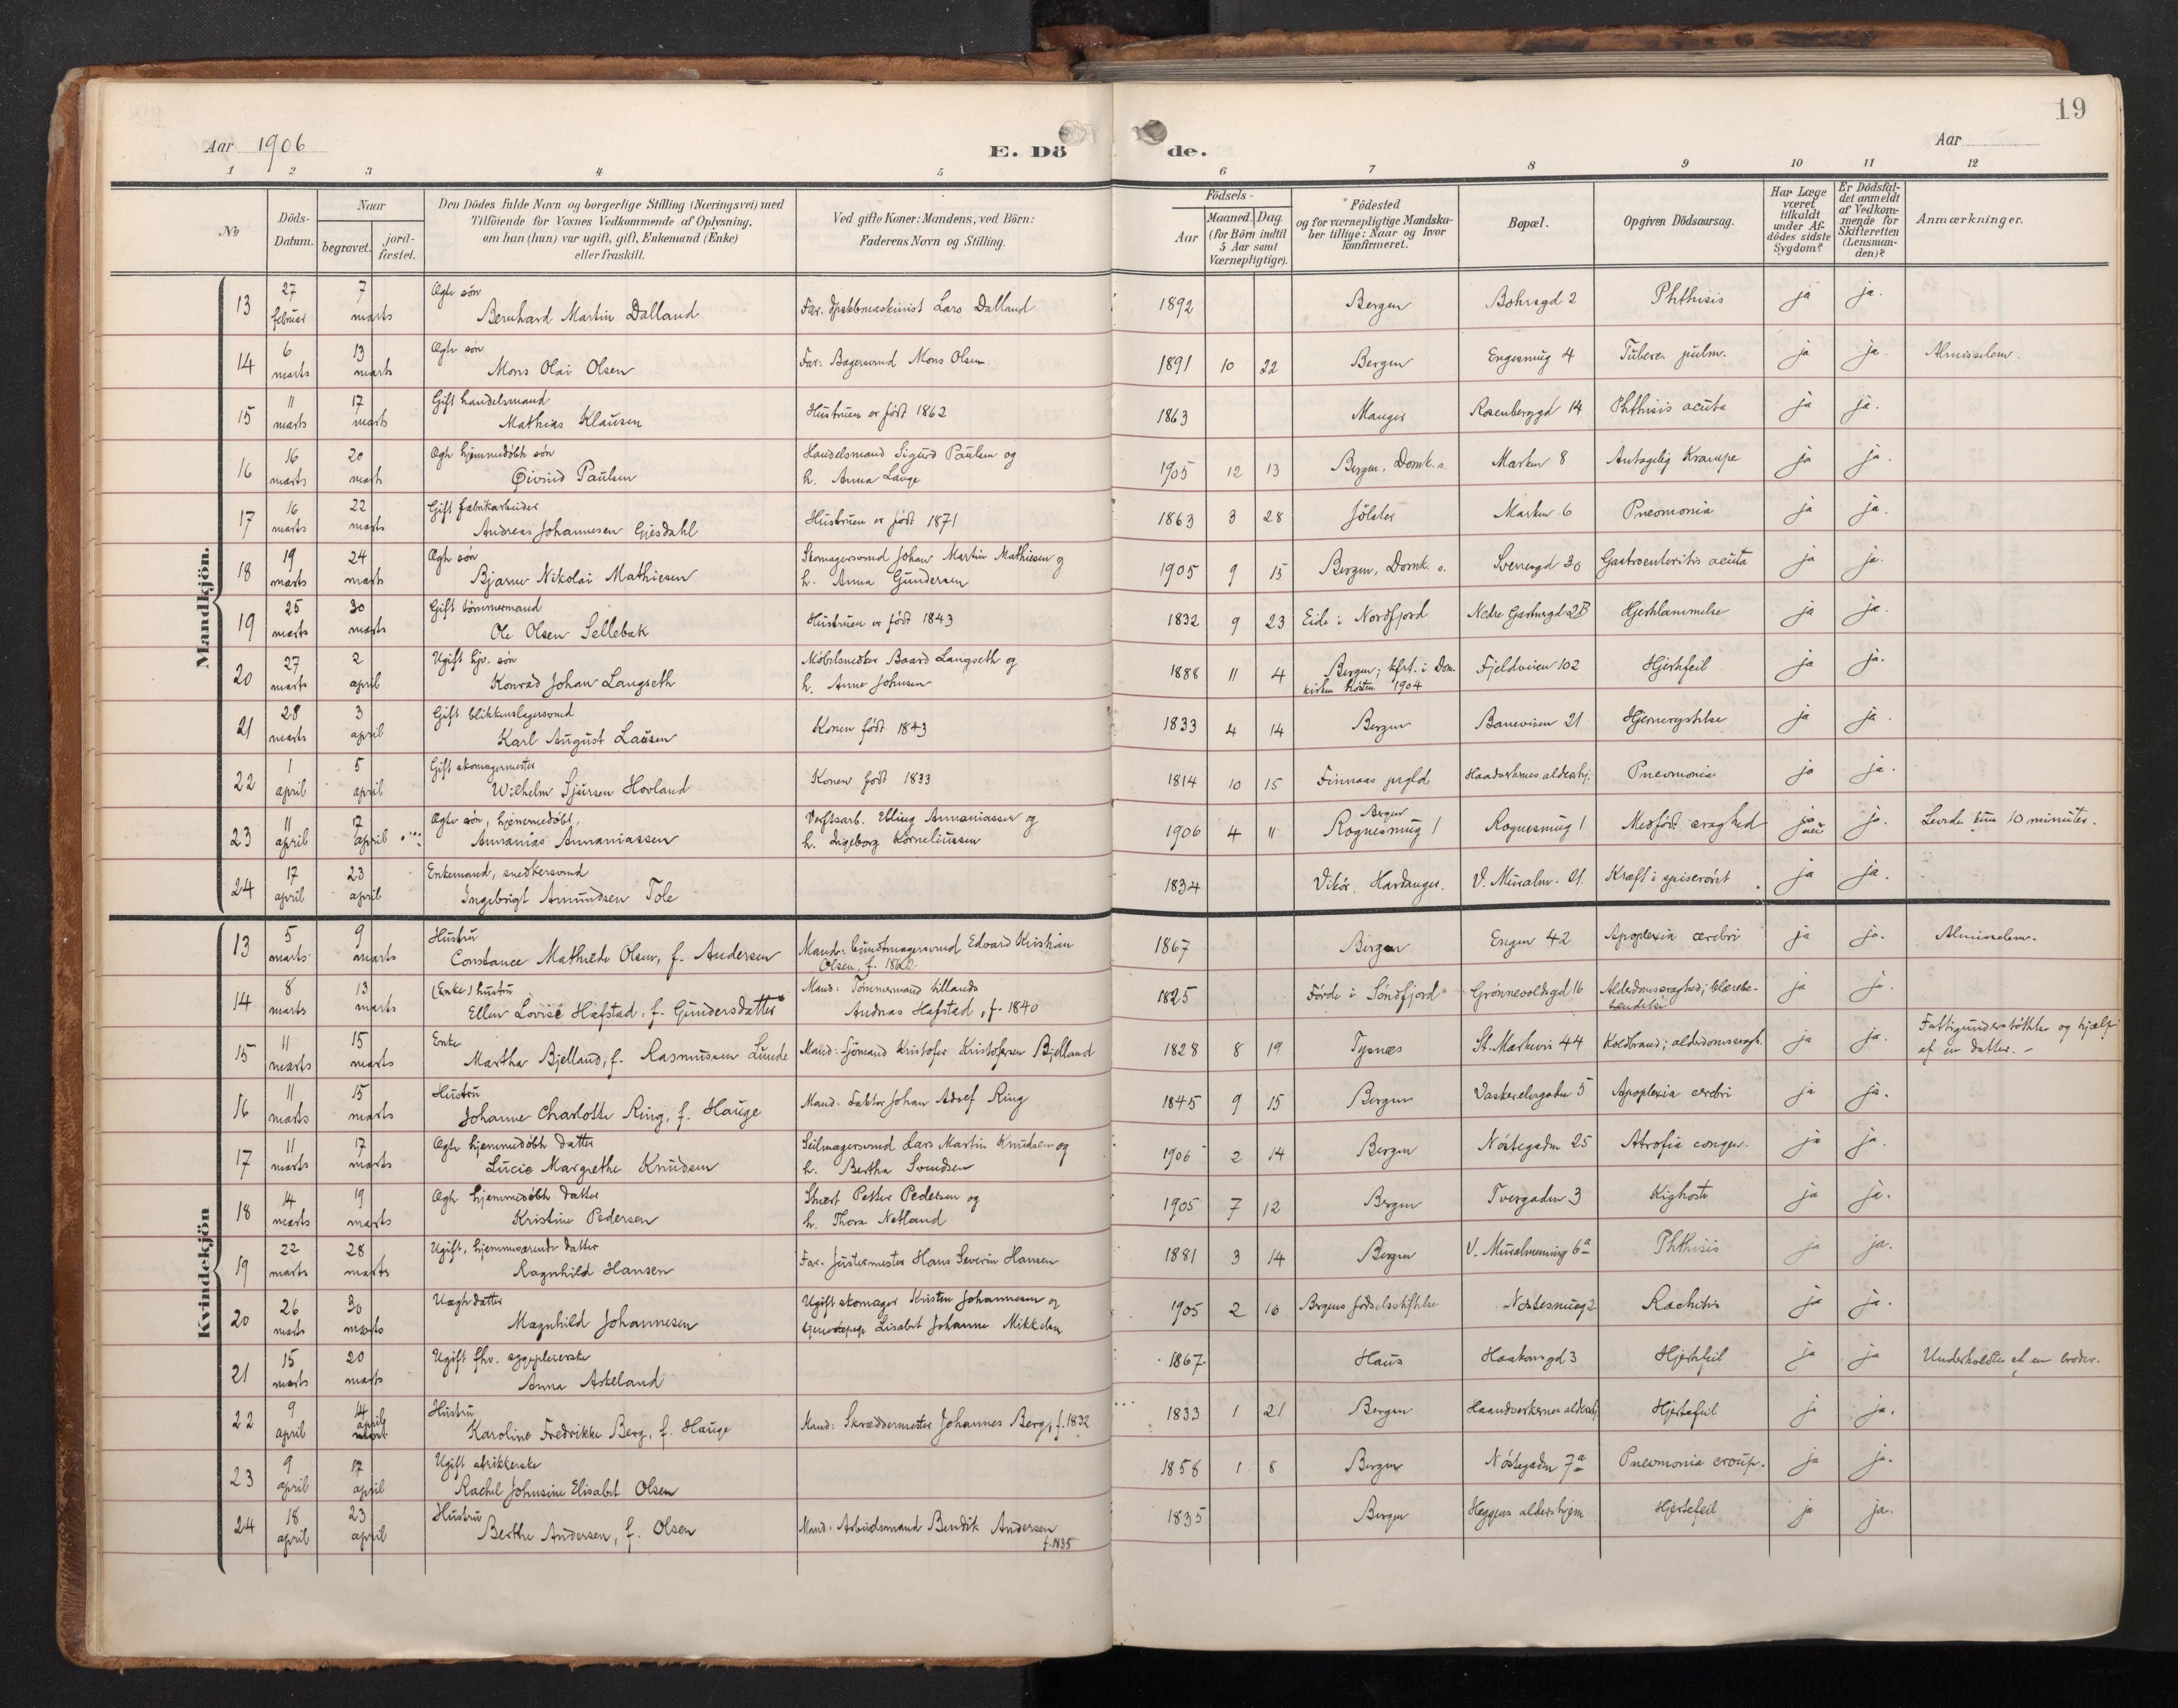 19
Aar 1906
E. Dö de.
Aar
1 2 3 4 5 6 7 8 9 10 11 12
No
Döds-Datum.
Naar
begravet.
jord-fæstet.
Den Dödes fulde Navn og borgerlige Stilling (Næringsvei) med
Tilföiende for Voxnes Vedkommende af Oplysning,
om han (hun) var ugift, gift, Enkemand (Enke)
eller fraskilt.
Ved gifte Koner: Mandens, ved Börn:
Faderens Navn og Stilling.
Födsels-
Aar
Maaned. Dag.
(for Börn indtil
5 Aar samt
Værnepligtige).
Födested
og for værnepligtige Mandska-
ber tillige: Naar og hvor
konfirmeret.
Bopæl.
Opgiven Dödsaarsag.
Har Læge
været
tilkaldt
under Af-
dödes sidste
Sygdom?
Er Dödsfal-
det anmeldt
af Vedkom-
mende for
Skifteretten
(Lensman-
den)?
Anmærkninger.
Mandkjön.
13 27 februar 7 marts Ægte søn Bernhard Martin Dalland Far. Lars Dalland 1892 Bergen Bohrsgd 2 Phthisis ja ja.
14 6 marts 13 marts Ægte søn Mons Olai Olsen Far: Bagersvend Mons Olsen 1891 10 22 Bergen Engesmug 4 Tuberc. pulm. ja ja. Almisselem.
15 11 marts 17 marts Gift handelsmand Mathias Klausen Hustruen er født 1862 1863 Manger Rosenberggd 14 Phthisis acuta ja ja.
16 16 marts 20 marts Ægte hjemmedøbt søn Øivind Paulsen Handelsmand Sigurd Paulsen og h. Anna Lange 1905 12 13 Bergen, Domk. s. Marken 8 Antagelig Krampe ja ja.
17 16 marts 22 marts Gift fabrikarbeider Andreas Johannesen Gjesdahl Hustruen er født 1871 1863 3 28 Jölster Marken 6 Pneomonia ja ja.
18 19 marts 24 marts Ægte søn Bjarne Nikolai Mathiesen Skomagersvend Johan Martin Mathiesen og h. Anna Gundersen 1905 9 15 Bergen, Domk. s. Sverresgd 30 Gastroenteritis acuta ja ja.
19 25 marts 30 marts Gift tømmermand Ole Olsen Sellebak Hustruen er født 1843 1832 9 23 Eide i Nordfjord Nedre 2B Hjertelammelse ja ja.
20 27 marts 2 april Ugift hjv. søn Konrad Johan Langseth Møbelsnedker Baard Langseth og h. Anne Johnsen 1888 11 4 Bergen; kfrt. i Dom-kirken høsten 1904 Fjeldveien 102 Hjertefeil ja ja.
21 28 marts 3 april Gift blikkenslagersvend Karl August Lausen Konen født 1843 1833 4 14 Bergen Baneveien 21 Hjernerystelse ja ja.
22 1 april 5 april Gift skomagermester Wilhelm Sjursen Hovland Konen født 1833 1814 10 15 Finnaas prgld Haandverkernes aldershj. Pneomonia ja ja.
23 11 april 17 april Ægte søn, hjemmedøbt, Annanias Annaniassen Verftsarb. Elling Annaniassen og h. Ingeborg Korneliussen 1906 4 11 Bergen Rognesmug 1 Rognesmug 1 Medfødt svaghed ja nei ja. Levde kun 10 minuter.
24 17 april 23 april Enkemand, snedkersvend Ingebrigt Amundsen Tole 1834 Vikör, Hardanger. V. Muralm. 21. Kræft i spiserøret ja ja.
Kvindekjön
13 5 marts 9 marts Hustru Constance Mathilde Olsen, f. Andersen Mand: buntmagersvend Edvard Kristian Olsen, f. 1862 1867 Bergen Engen 42 Apoplexia cerebri ja ja. Almisselem.
14 8 marts 13 marts (Enke) hustru Ellen Lovise Hafstad, f. Gundersdatter Mand: Tømmermand tillands Andreas Hafstad, f. 1840 1825 Förde i Söndfjord Grönnevoldsgd 16 Alderdomssvaghed; ja ja.
15 11 marts 15 marts Enke Martha Bjelland, f. Rasmussen Lunde Mand: Sjömand Kristofer Kristofersen Bjelland 1828 8 19 Tysnes St. Markevei 44 Koldbrand; alderdomssvagh. ja ja. Fattigunderstøttelse og hjælp af en datter. –
16 11 marts 15 marts Hustru Johanne Charlotte Ring, f. Hauge Mand: Faktor Johan Adolf Ring 1845 9 15 Bergen Vaskerelvgaden 5 Apoplexia cerebri ja ja.
17 11 marts 17 marts Ægte hjemmedøbt datter Lucie Margrethe Knudsen Seilmagersvend Lars Martin Knudsen og h. Bertha Svendsen 1906 2 14 Bergen Nöstegaden 25 Atrofia congen. ja ja.
18 14 marts 19 marts Ægte hjemmedøbt datter Kristine Pedersen Stuert Petter Pedersen og h. Thora Netland 1905 7 12 Bergen Tvergaden 3 Kighoste ja ja.
19 22 marts 28 marts Ugift, hjemmeværende datter Ragnhild Hansen Far. Justermester Hans Severin Hansen 1881 3 14 Bergen V. Muralmenning 6a Phthisis ja ja.
20 26 marts 30 marts Uægte datter Magnhild Johannesen Ugift skomager Kristen Johannesen og tjenestepige Lisabet Johanne Mikkelsen 1905 2 16 Bergens fødselsstiftelse Nöstesmug 2 Rachitis ja ja.
21 15 marts 20 marts Ugift fhv. sygepleierske Anna Askeland 1867 Haus Haakonsgd 3 Hjertefeil ja ja Underholdtes af en broder.
22 9 april 14 april Hustru Karoline Fredrikke Berg, f. Hauge Mand: Skræddermester Johannes Berg, f. 1832 1833 1 21 Bergen Haandverkernes aldershj. Hjertefeil ja ja.
23 9 april 17 april Ugift strikkerske Rachel Johnsine Elisabet Olsen 1858 1 8 Bergen Nöstegaden 7a Pneomonia croup. ja ja.
24 18 april 23 april Hustru Berthe Andersen, f. Olsen Mand: Arbeidsmand Bendik Andersen f. 1835 1835 Bergen Heggens aldershjem Hjertefeil ja ja.